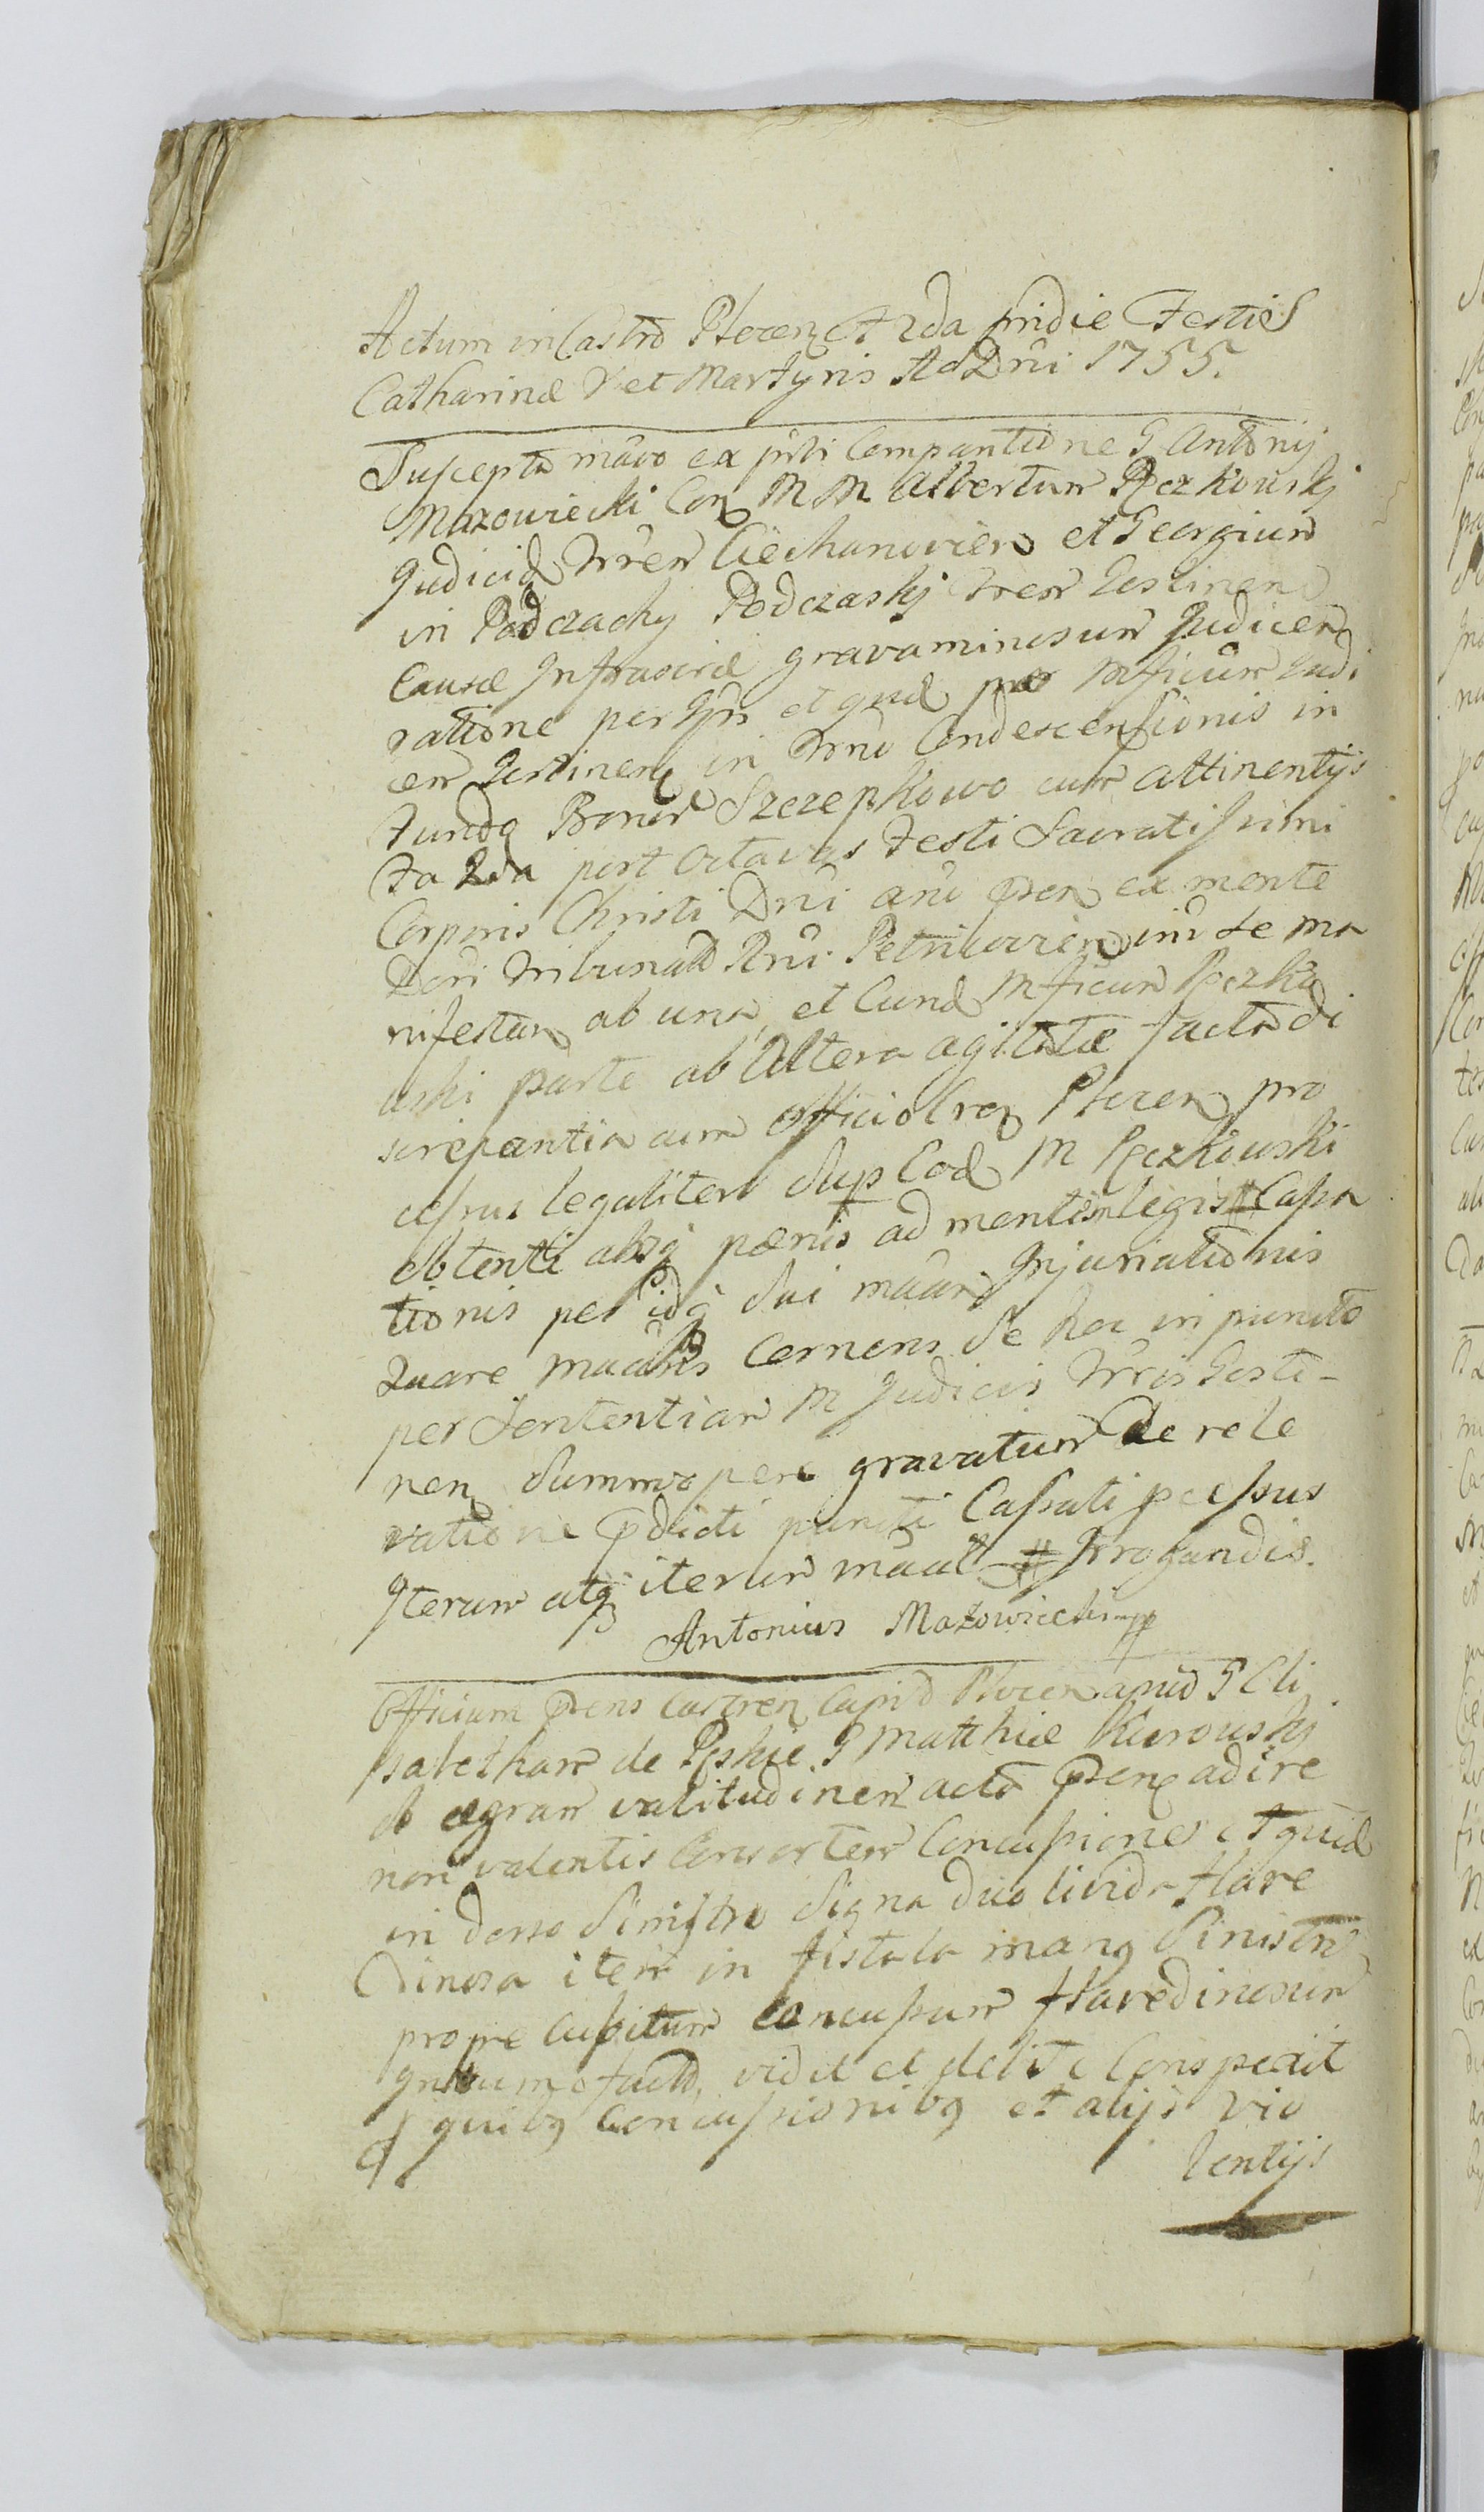 Actum in Castro Plocen F 2da pridie Festi S
Catharinæ V et Martyris Ao Dni 1755.
Suscepta maõ ex pnti Comparitione G Antonij
Mazowiecki Con M M Albertum Ręczkowskj
Judicid Trren Ciechanovien et Georgium
in Podczachy Podczaskj Tren Gostinen
Causæ Infrascriæ gravaminosum Judicem
ratione per Ipm et qnd prær Mficum Judi
cem Gostinen in Trno Condescensionis in
Fundo Bonor Szczepkowo cum attinentijs
Fa 2da post octavas Festi Sacratissimi
Corporis Christi Dni ano pren ex mente
Dcri Tribunalis Rni Petricovien int se ma
nifestan ab una, et Cund Mficum Ręczko
wski parte ab altera agitatæ facta di
screpantia cum officio Cren Plocen pro
cessus legaliter sup Eod M Ręczkowski
obtenti absq pœnis ad mentem legis # Cassa
tionis per idq sui maãn Injuriationis
Quare maãns Cernens se hoc in puncto
per Sententiam M Judicis Trris Gosti-
nen summopere gravatum de rele
vatione pdicti puncti Cassati pcessus
Iterum atq iterum maãt # Irrogandis.
Antonius Mazowiecki mpp
Officium prens Castren Capit Plocen apud G Eli
sabetham de Ręskie G Matthiæ Kurowskj
ob ægram valitudinem acta pren adire
non valentis Consortem Concussiones et quid
in dorso Sinistro signa duo livida flave
dinosa item in fistula manq Sinistræ
prope cubitum concussum flavedinosum
vidit et debite Conspexit
quibq Concussionibq et alijs vio
lentijs